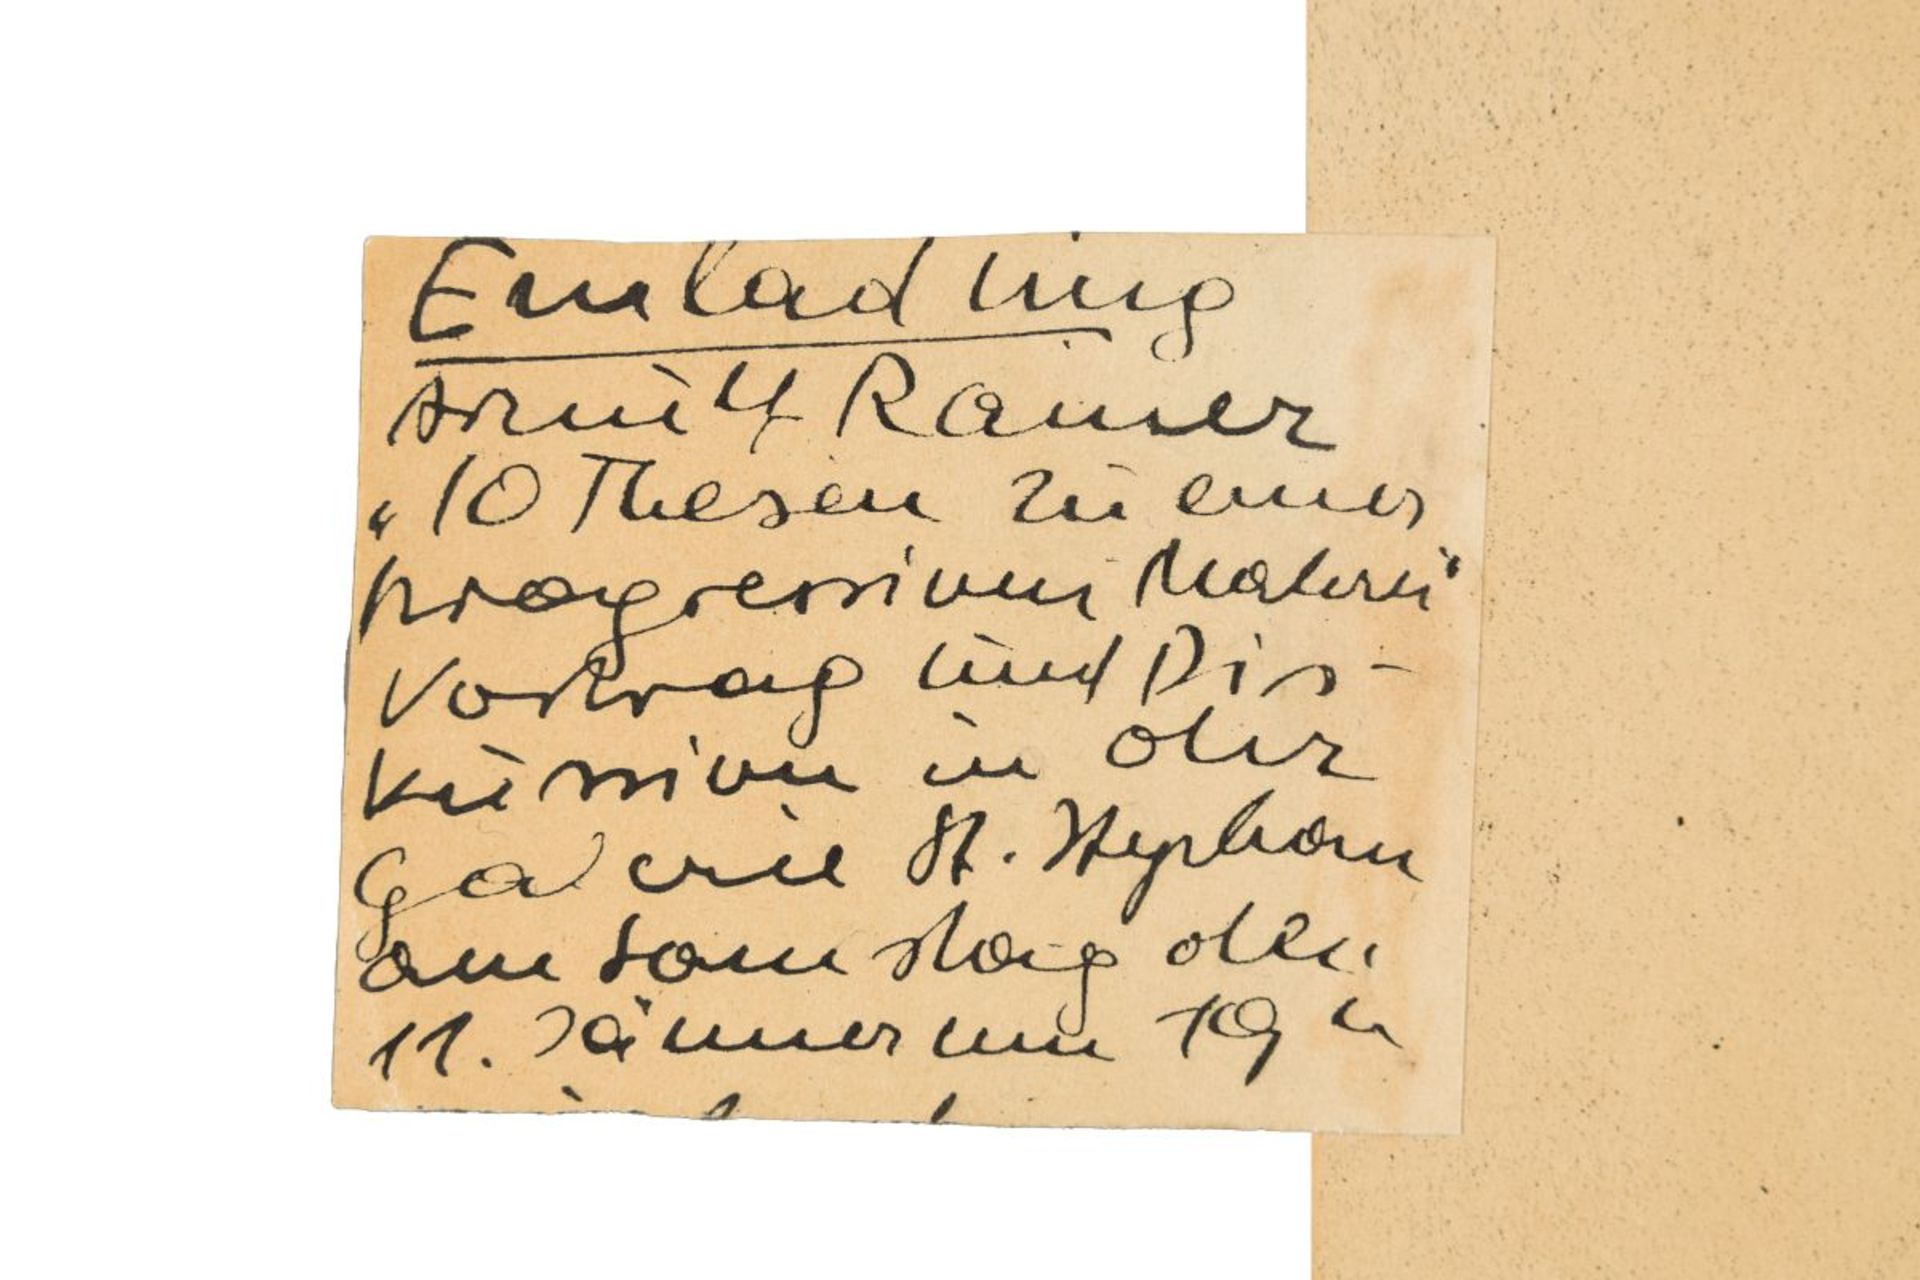 Einladung
Arnulf Rainer
"10 Thesen zu einer
progressiven Malerei"
Vortrag und Dis-
kussion in der
Galerie St. Stephan
am Samstag den
11. Jänner um 19 h